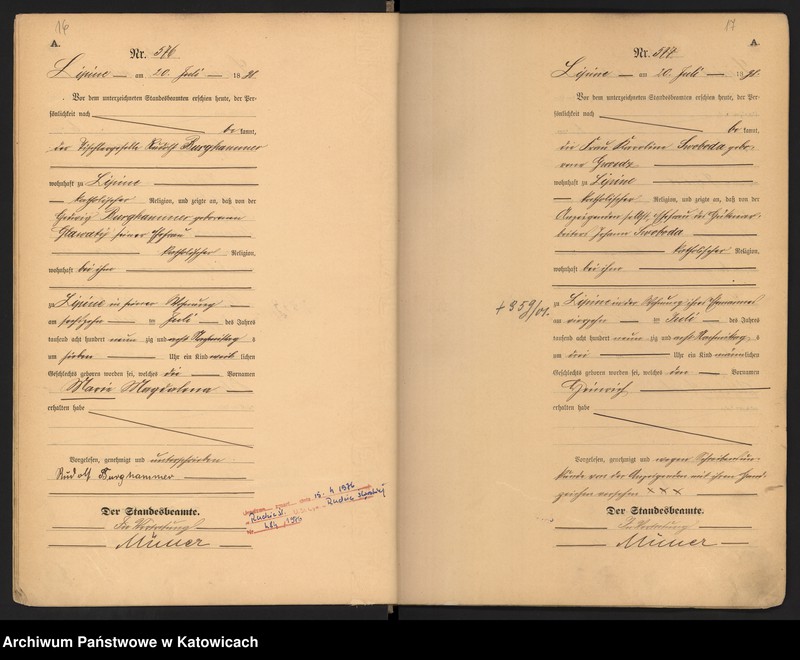 16
A.
Nr. 576
Lipine am 20. Juli 1898.
Vor dem unterzeichneten Standesbeamten erschien heute, der Per-
sönlichkeit nach
be kannt,
der Tischlergeselle Rudolf Burghammer
wohnhaft zu Lipine
katholischer Religion, und zeigte an, daß von der
Hedwig Burghammer geborenen
seiner Ehefrau
katholischer Religion,
wohnhaft bei ihm
zu Lipine in seiner Wohnung
am sechszehn ten Juli des Jahres
tausend acht hundert neun zig und acht Nachmittag s
um sieben Uhr ein Kind weib lichen
Geschlechts geboren worden sei, welches die Vornamen
Marie Magdalena
erhalten habe
Vorgelesen, genehmigt und unterschrieben
Rudolf Burghammer
Der Standesbeamte.
In Vertretung
Müller
15. 4 1936
17
A.
Nr. 577
Lipine am 20. Juli 1898.
Vor dem unterzeichneten Standesbeamten erschien heute, der Per-
sönlichkeit nach
be kannt,
die Frau Karoline Swoboda gebo-
rene
wohnhaft zu Lipine
katholischer Religion, und zeigte an, daß von der
Anzeigenden selbst, Ehefrau des Hütenar-
beiters Johann Swoboda
katholischer Religion,
wohnhaft bei ihm
+ 359/01.
zu Lipine in der Wohnung ihres Ehemannes
am vierzehn ten Juli des Jahres
tausend acht hundert neun zig und acht Nachmittag s
um drei Uhr ein Kind männlichen
Geschlechts geboren worden sei, welches den Vornamen
Heinrich
erhalten habe
Vorgelesen, genehmigt und wegen Schreibensun-
kunde von der Anzeigenden mit ihrem Hand-
zeichen versehen XXX
Der Standesbeamte.
In Vertretung
Müller
Archiwum Państwowe w Katowicach